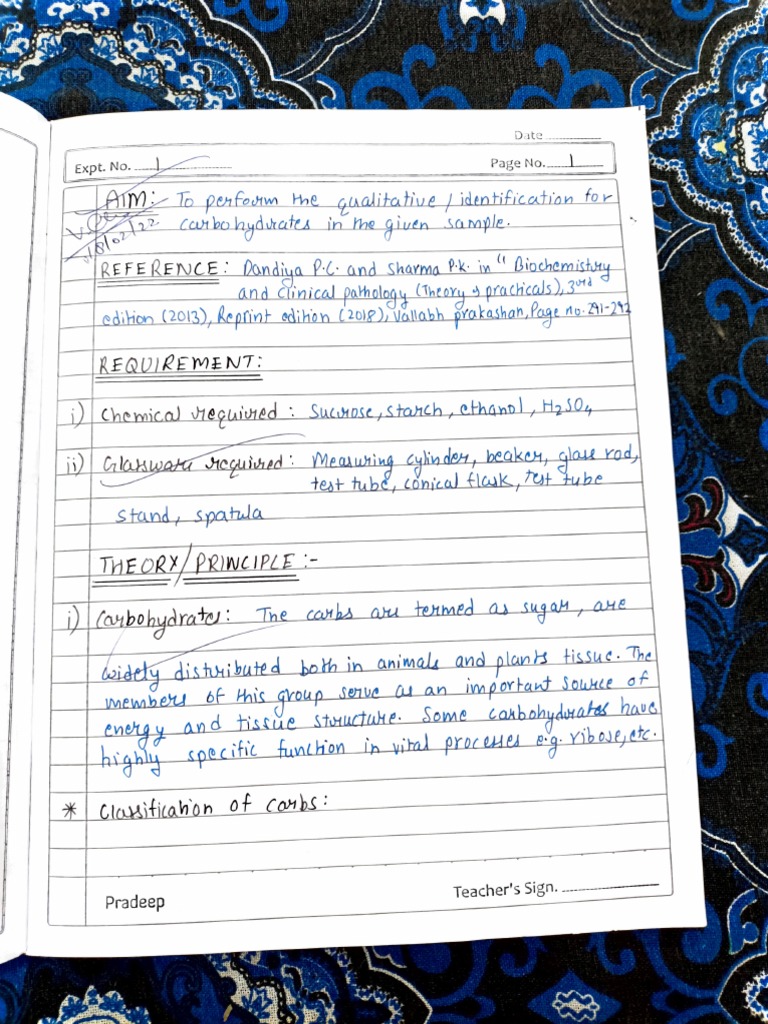 Date
Expt. No. 1
Page No. 1
AIM: To perform the qualitative / identification for
carbohydrates in the given sample.
18/02/22
REFERENCE: Dandiya P.C. and Sharma P.K. in "Biochemistry
and clinical pathology (Theory & practicals), 3rd
edition (2013), Reprint edition (2018), Vallabh prakashan, Page no. 291-292
REQUIREMENT:
i) Chemical required: Sucrose, starch, ethanol, H₂SO₄
ii) Glassware required: Measuring cylinder, beaker, glass rod,
test tube, conical flask, test tube
stand, spatula
THEORY/PRINCIPLE:-
i) Carbohydrates: The carbs are termed as sugar, are
widely distributed both in animals and plants tissue. The
members of this group serve as an important source of
energy and tissue structure. Some carbohydrates have
highly specific function in vital processes e.g. ribose, etc.
* Classification of carbs:
Pradeep
Teacher's Sign.